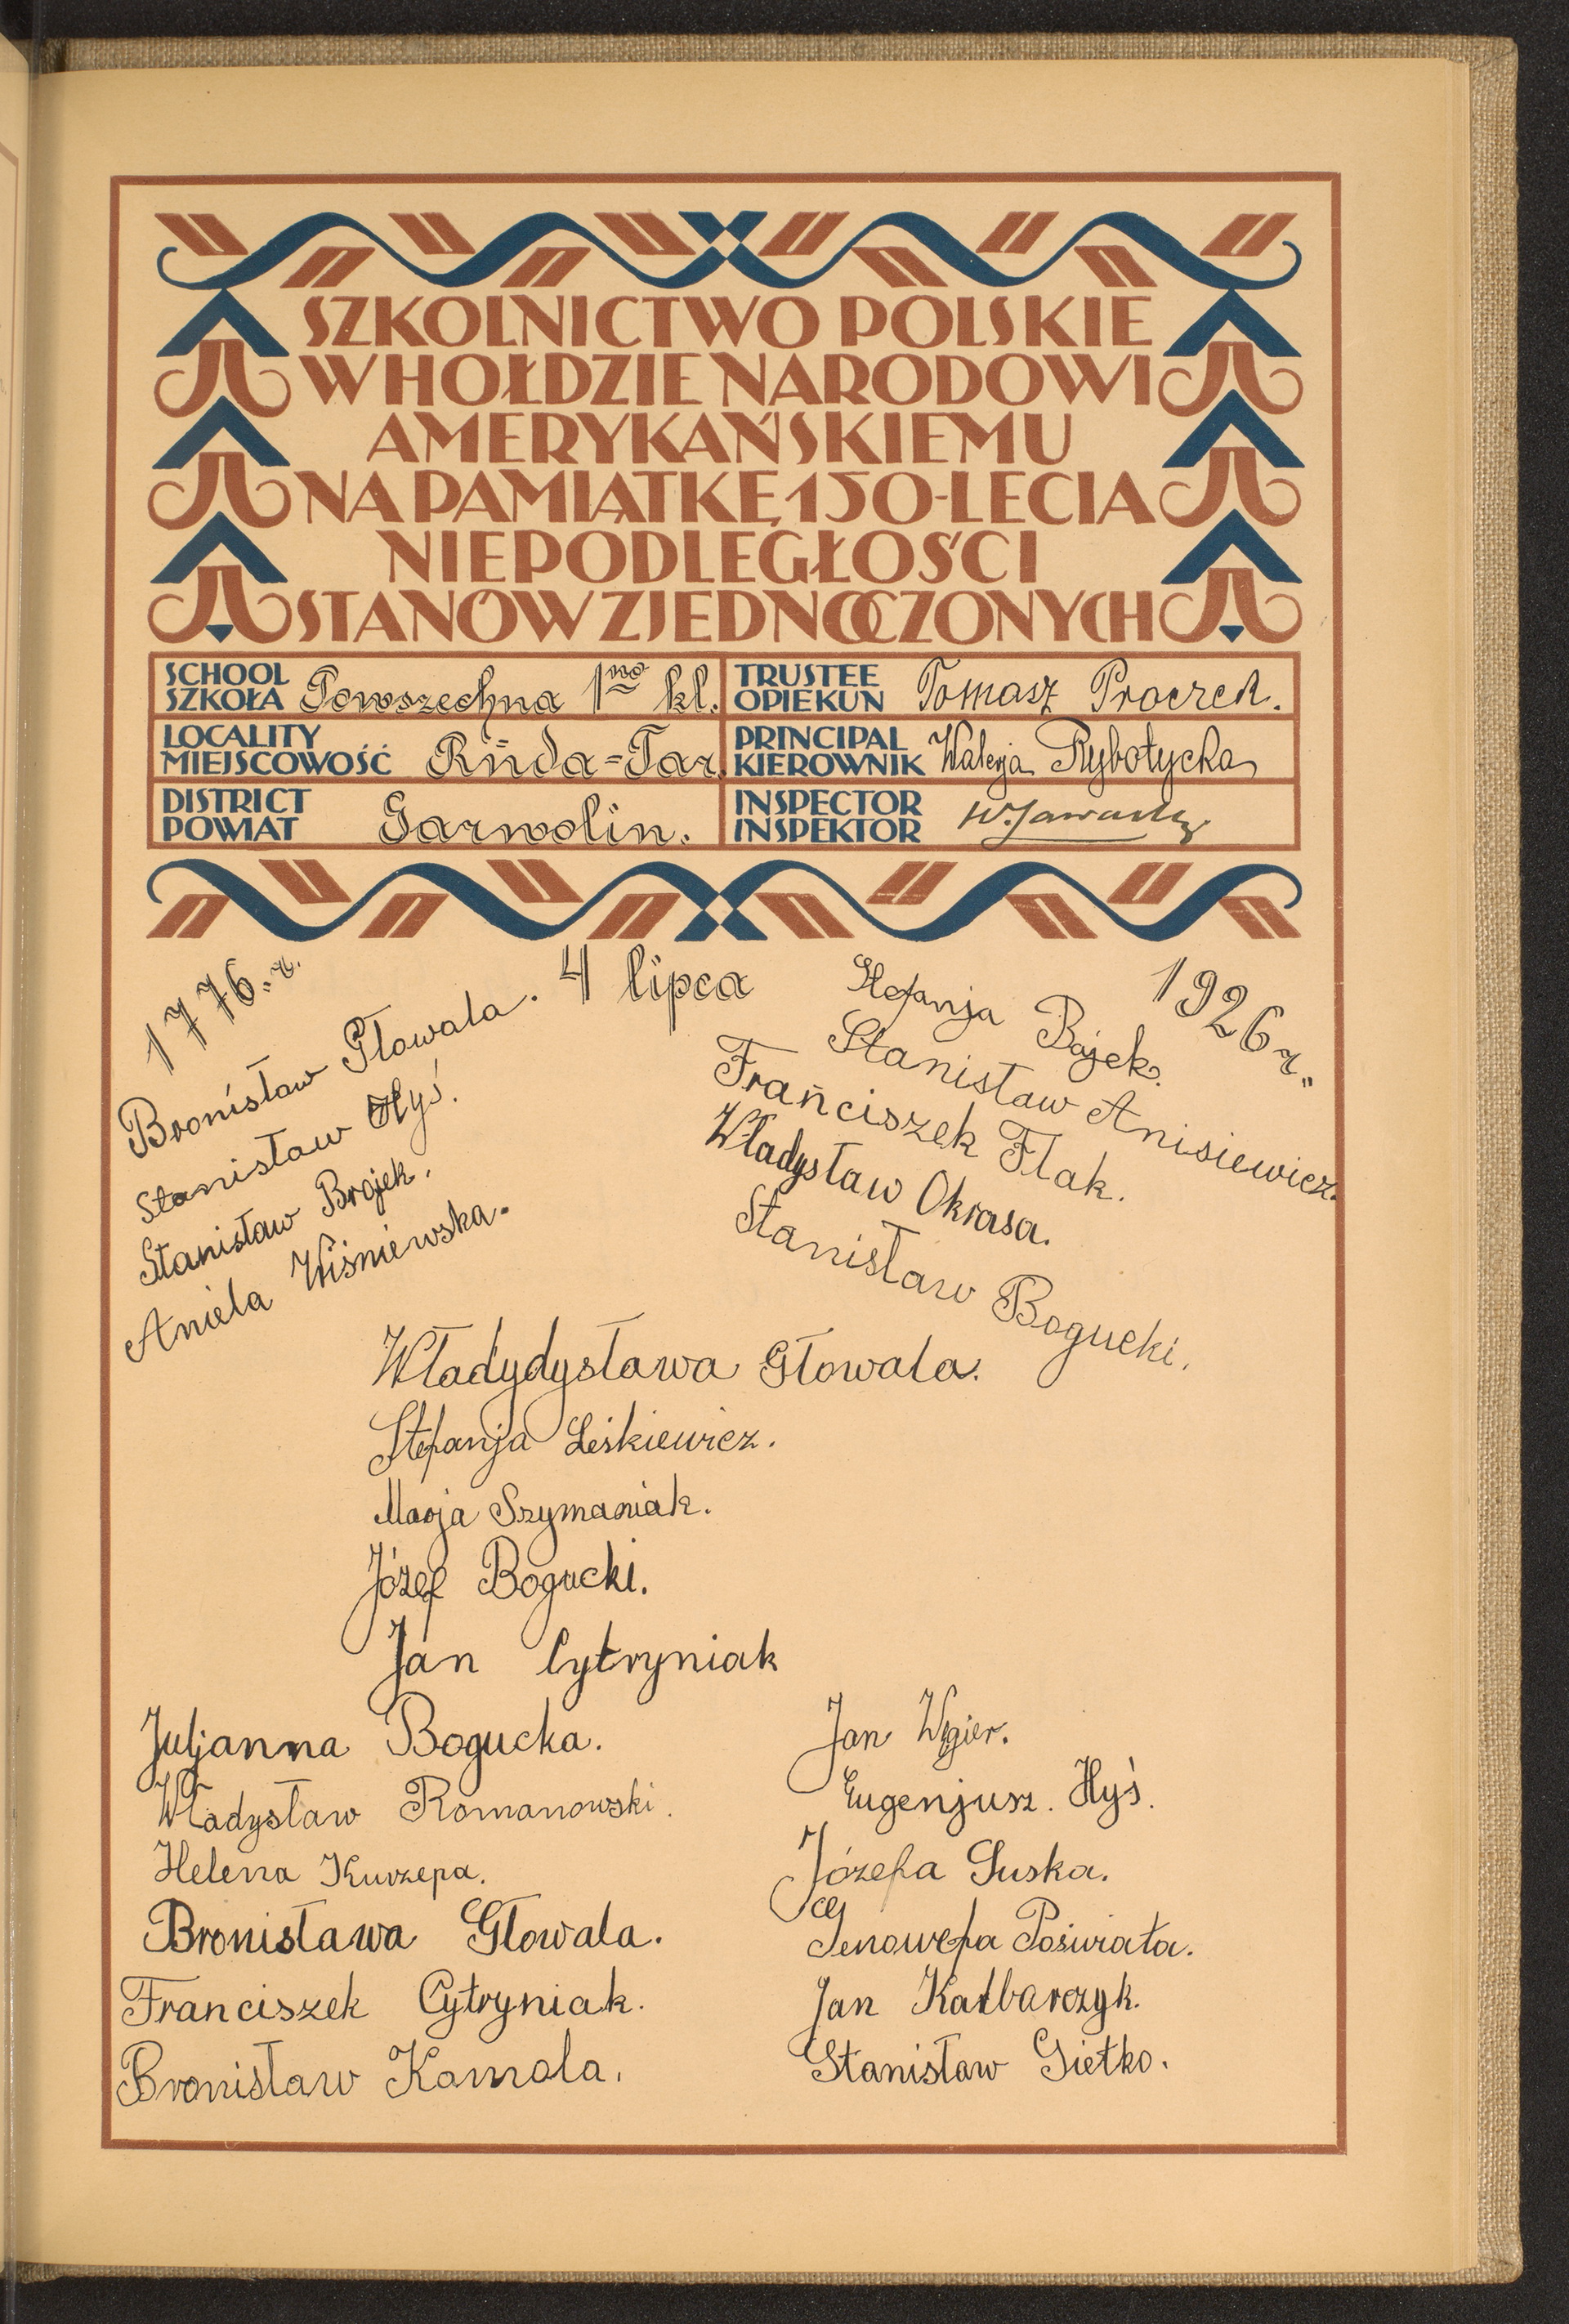 SZKOLNICTWO POLSKIE
W HOŁDZIE NARODOWI
AMERYKAŃSKIEMU
NA PAMIĄTKĘ 150-LECIA
NIEPODLEGŁOŚCI
STANÓW ZJEDNOCZONYCH
SCHOOL
SZKOŁA Powszechna 1no kl.
TRUSTEE
OPIEKUN Tomasz Proczek.
LOCALITY
MIEJSCOWOŚĆ Ruda-Tar.
PRINCIPAL
KIEROWNIK Walerja Rybotycka
DISTRICT
POWIAT Garwolin.
INSPECTOR
INSPEKTOR
1776.r. 4 lipca 1926 r.
Bronisław Głowala.
Stanisław Hyś.
Stanisław Brojek.
Aniela Wiśniewska.
Stefanja Bojek.
Stanisław Anisiewicz.
Franciszek Flak.
Władysław Okrasa.
Stanisław Bogucki.
Władydysława Głowala.
Stefanja Leśkiewicz.
Marja Szymaniak.
Józef Bogucki.
Jan Cytryniak
Juljanna Bogucka.
Władysław Romanowski.
Helena Kurzepa.
Bronisława Głowala.
Franciszek Cytryniak.
Bronisław Kamola.
Jan Węgier.
Eugenjusz. Hyś.
Józefa Suska.
Genowefa Pośwиata.
Jan Kalbarczyk.
Stanisław Gietko.